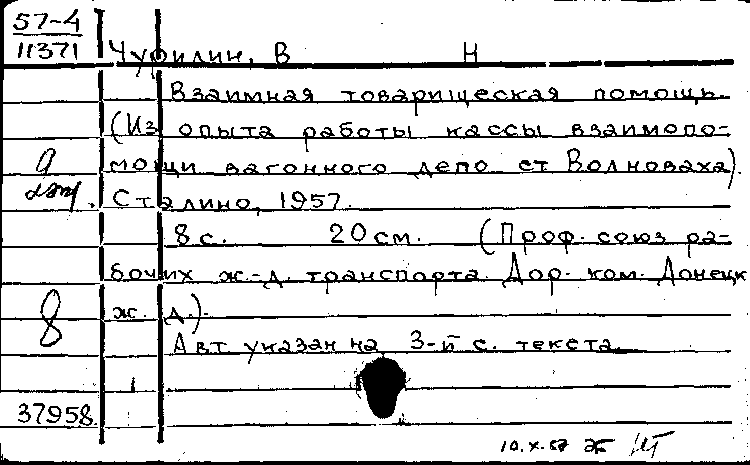 57-4
11371
Чурилин, В Н
Взаимная товарищеская помощь.
(Из опыта работы кассы взаимопо-
мощи вагонного депо ст Волноваха).
Сталино, 1957.
8 с. 20 см. (Проф. союз ра-
бочих ж.-д. транспорта. Дор. ком. Донецк
ж. д.).
Авт указан на 3-й с. текста.
8
37958.
10.X.57